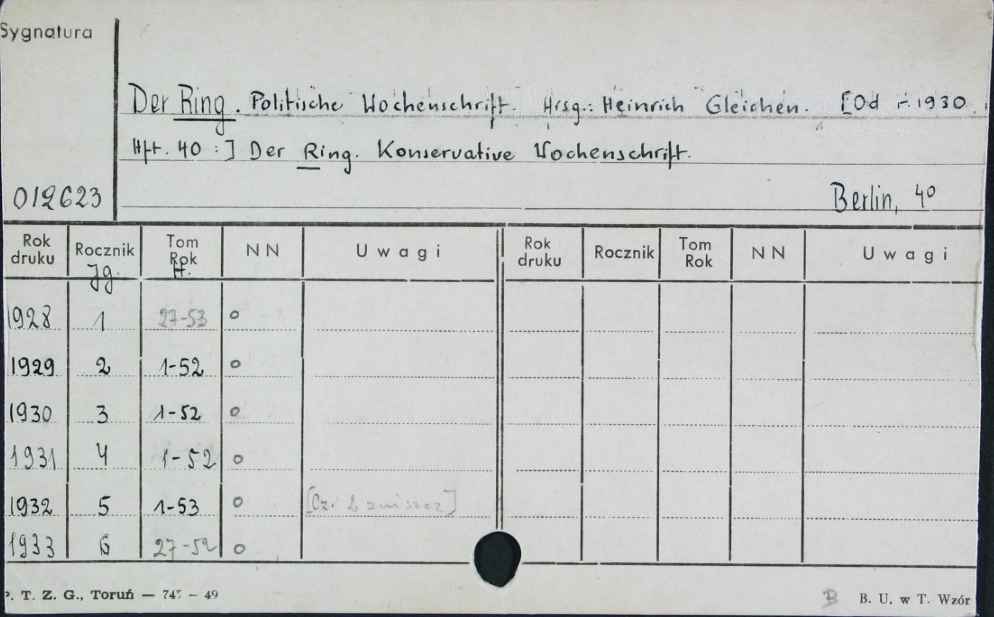 Sygnatura
Der Ring. Politische Wochenschrift. Hrsg.: Heinrich Gleichen. [Od 1930
Hft. 40 :] Der Ring. Konservative Wochenschrift.
012623 Berlin, 4°
Rok druku Rocznik Jg. Tom Rok H. NN Uwagi Rok druku Rocznik Tom Rok NN Uwagi
1928 1 27-53 o
1929 2 1-52 o
1930 3 1-52 o
1931 4 1-52 o
1932 5 1-53 o [Cz.
1933 6 27-52 o
P. T. Z. G., Toruń — 49
B B. U. w T. Wzór